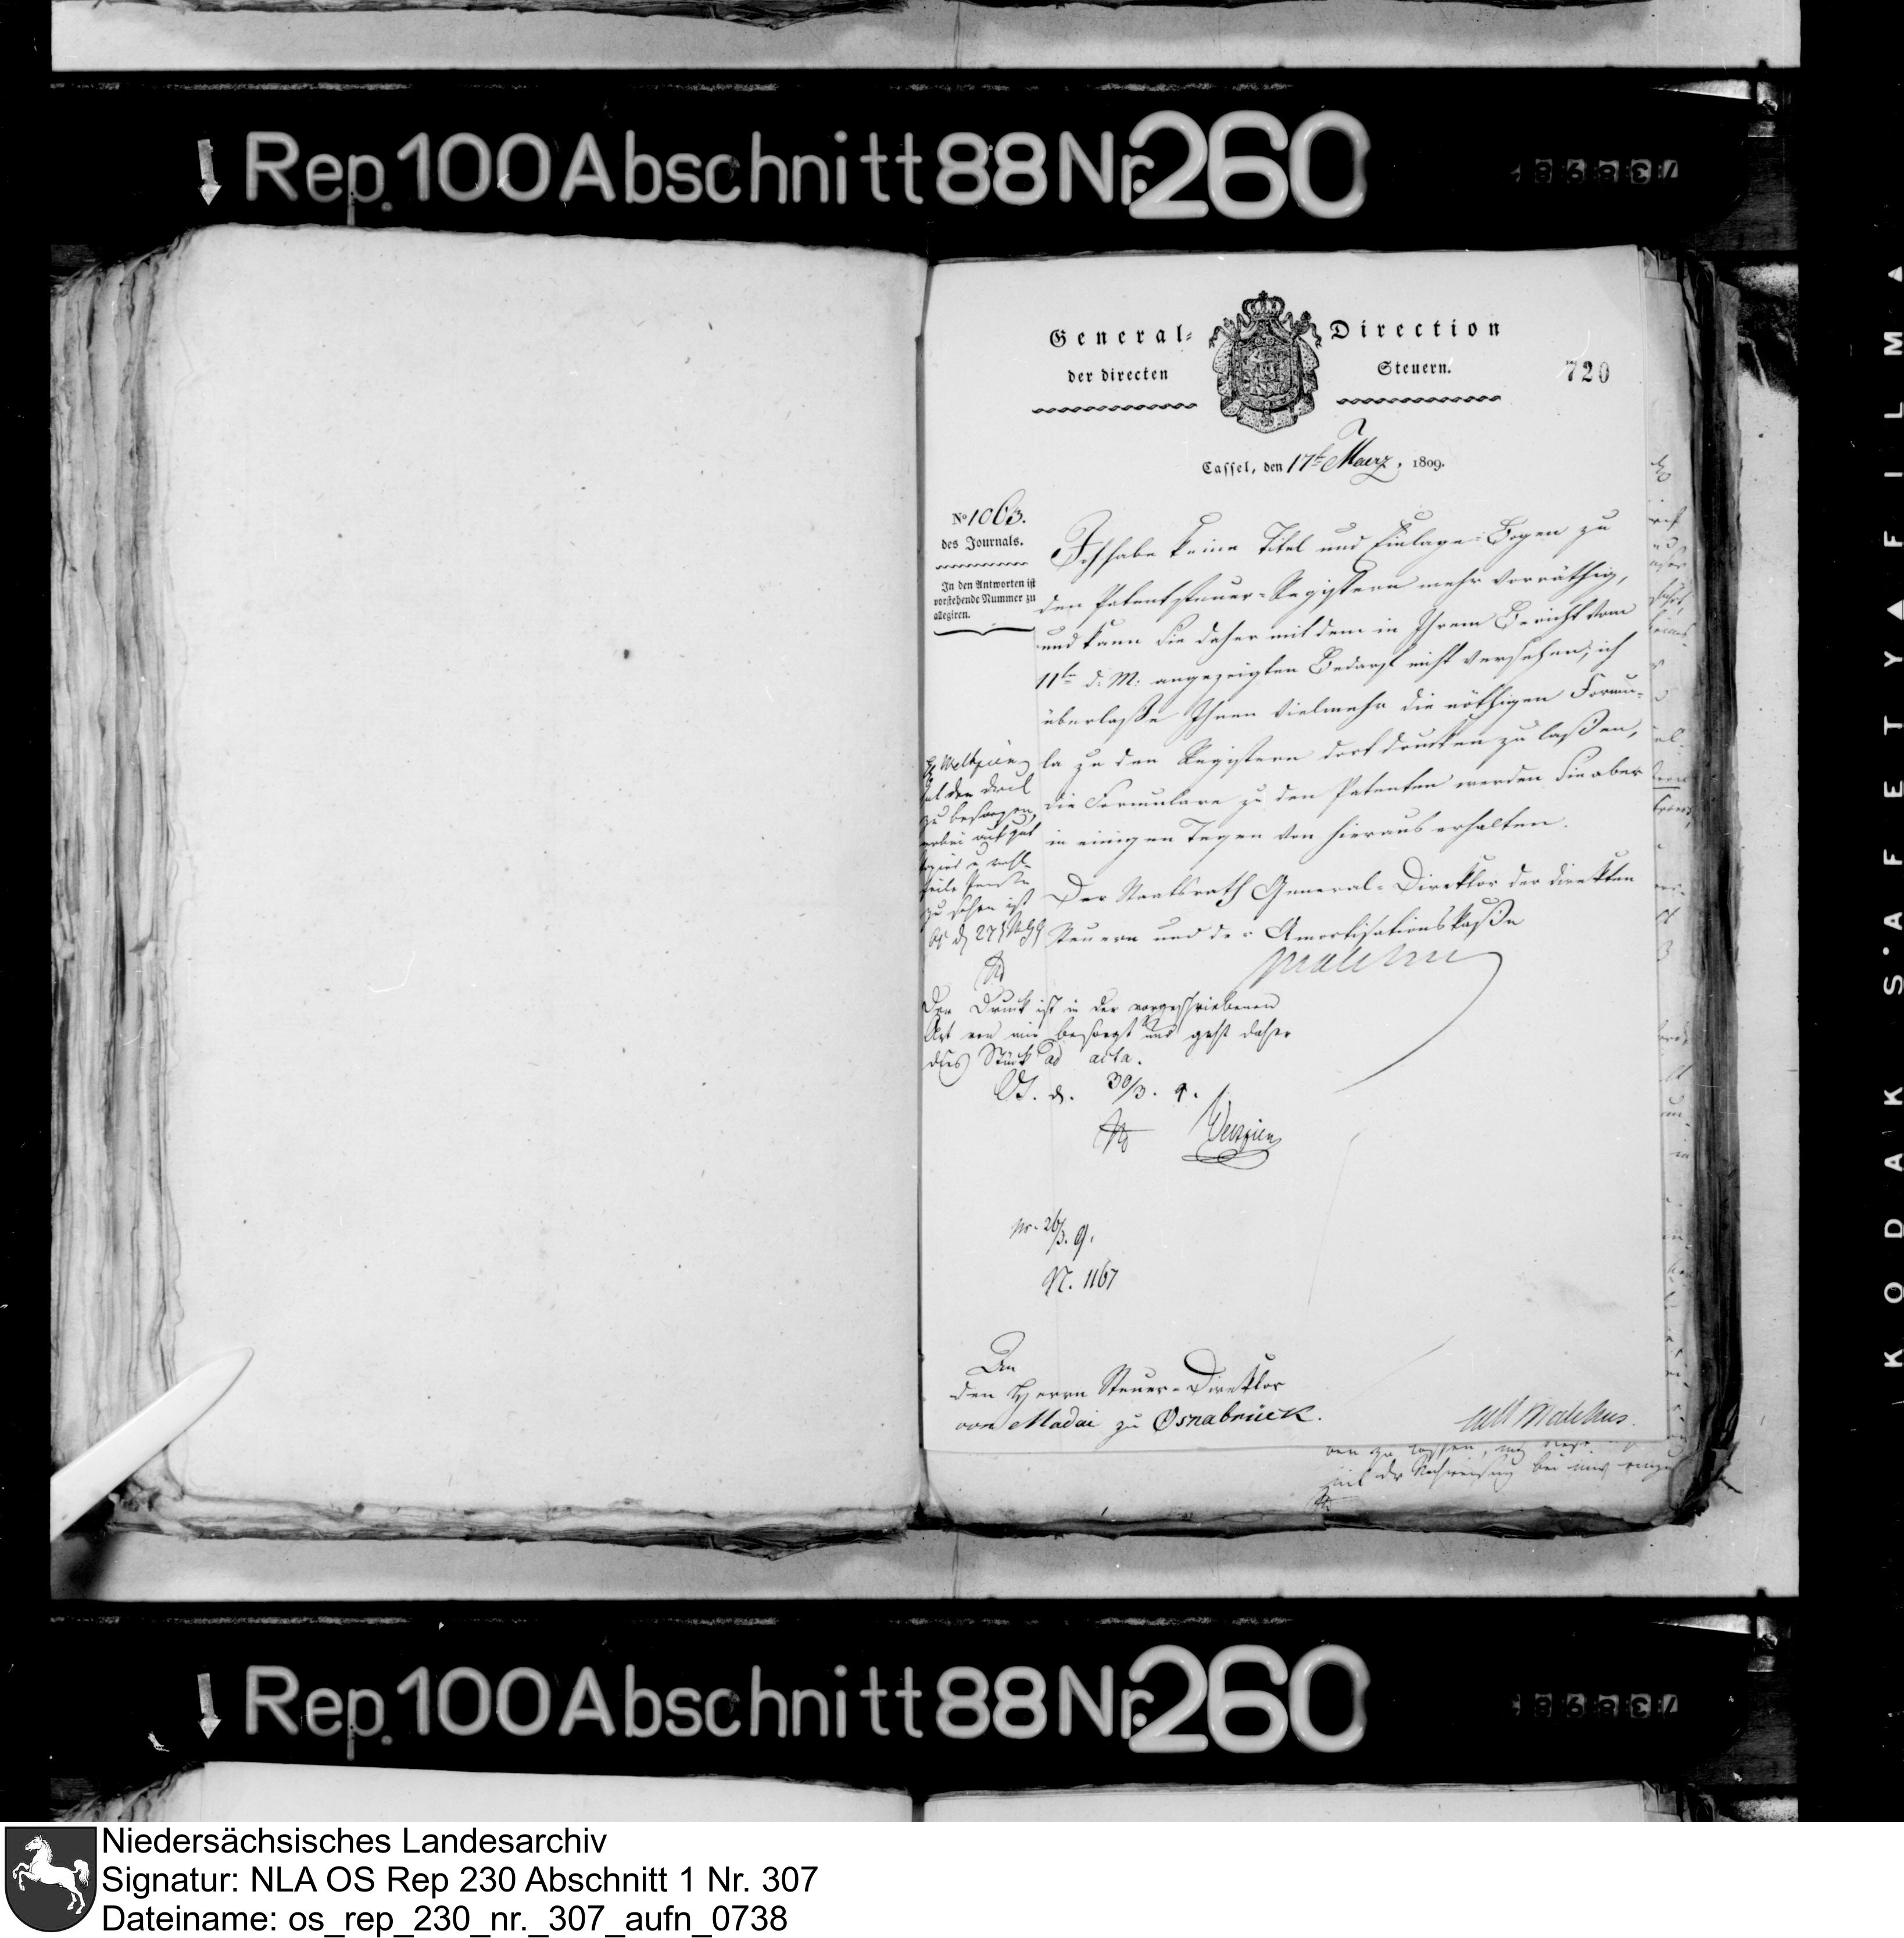 Rep. 100 Abschnitt 88 Nr. 260
General-Direction
der directen Steuern.
720
Cassel, den 17t Maerz, 1809.
No 1063.
des Journals.
In den Antworten ist
vorstehende Nummer zu
allegiren.
Ich habe keine Titel und Einlage-Bogen zu
den Patentsteuer-Registern mehr vorräthig,
und kann Sie daher mit dem in Ihrem Bericht vom
11ten d. M. angezeigten Bedarf nicht versehen; ich
überlaße Ihnen vielmehr die nöthigen Formu-
la zu den Registern dort drucken zu laßen,
die Formulare zu den Patenten werden Sie aber
in einigen Tagen von hieraus erhalten.
Der Staatsrath General-Direktor der direkten
Steuern und der Amortisationskaße
Malchus
zu besorgen,
auf gut
zu sehen ist
Der Druck ist in der vorgeschriebenen
Art von mir besorgt und geht daher
dies Stück ad acta.
Os. d. 30/3. 9.
pr. 26/3. 9.
N. 1167
An
den Herrn Steuer-Direktor
von Madai zu Osnabrück.
Carl Malchus.
KODAK SAFETY FILM
Rep. 100 Abschnitt 88 Nr. 260
Niedersächsisches Landesarchiv
Signatur: NLA OS Rep 230 Abschnitt 1 Nr. 307
Dateiname: os_rep_230_nr._307_aufn_0738